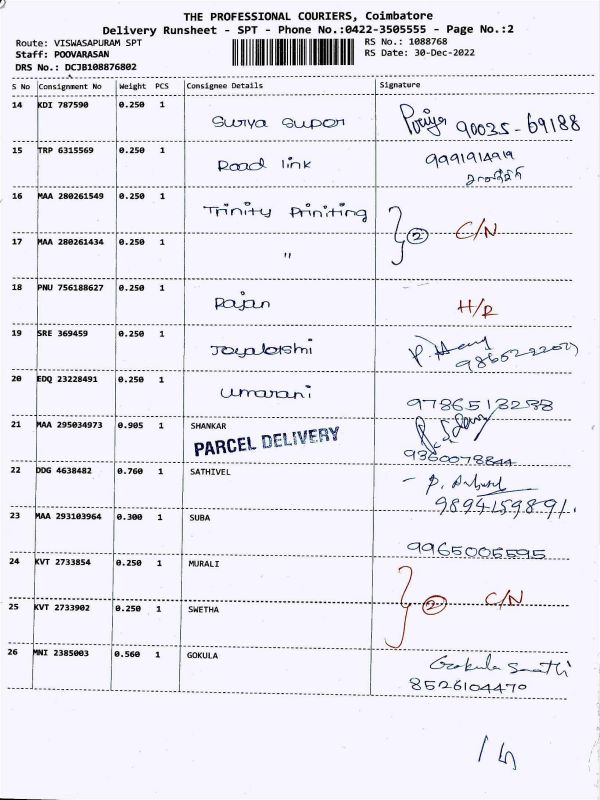 THE PROFESSIONAL COURIERS, Coimbatore
Delivery Runsheet - SPT - Phone No.:0422-3505555 - Page No.:2
Route: VISWASAPURAM SPT
RS No.: 1088768
Staff: POOVARASAN
RS Date: 30-Dec-2022
DRS No.: DCJB108876802
S No Consignment No Weight PCS Consignee Details Signature
14 KDI 787590 0.250 1
Surya Super Poriya 90035-69188
15 TRP 6315569 0.250 1
Road link 9991914919
16 MAA 280261549 0.250 1
Trinity Priniting
② C/N
17 MAA 280261434 0.250 1
"
18 PNU 756188627 0.250 1
Rajan H/R
19 SRE 369459 0.250 1
Jayalakshmi P.
20 EDQ 23228491 0.250 1
Umarani 9786513288
21 MAA 295034973 0.905 1 SHANKAR
PARCEL DELIVERY
9360078844
22 DDG 4638482 0.760 1 SATHIVEL
- P.
9894159891.
23 MAA 293103964 0.300 1 SUBA
9965006595
24 KVT 2733854 0.250 1 MURALI
② C/N
25 KVT 2733902 0.250 1 SWETHA
26 MNI 2385003 0.560 1 GOKULA
Gokula
8526104470